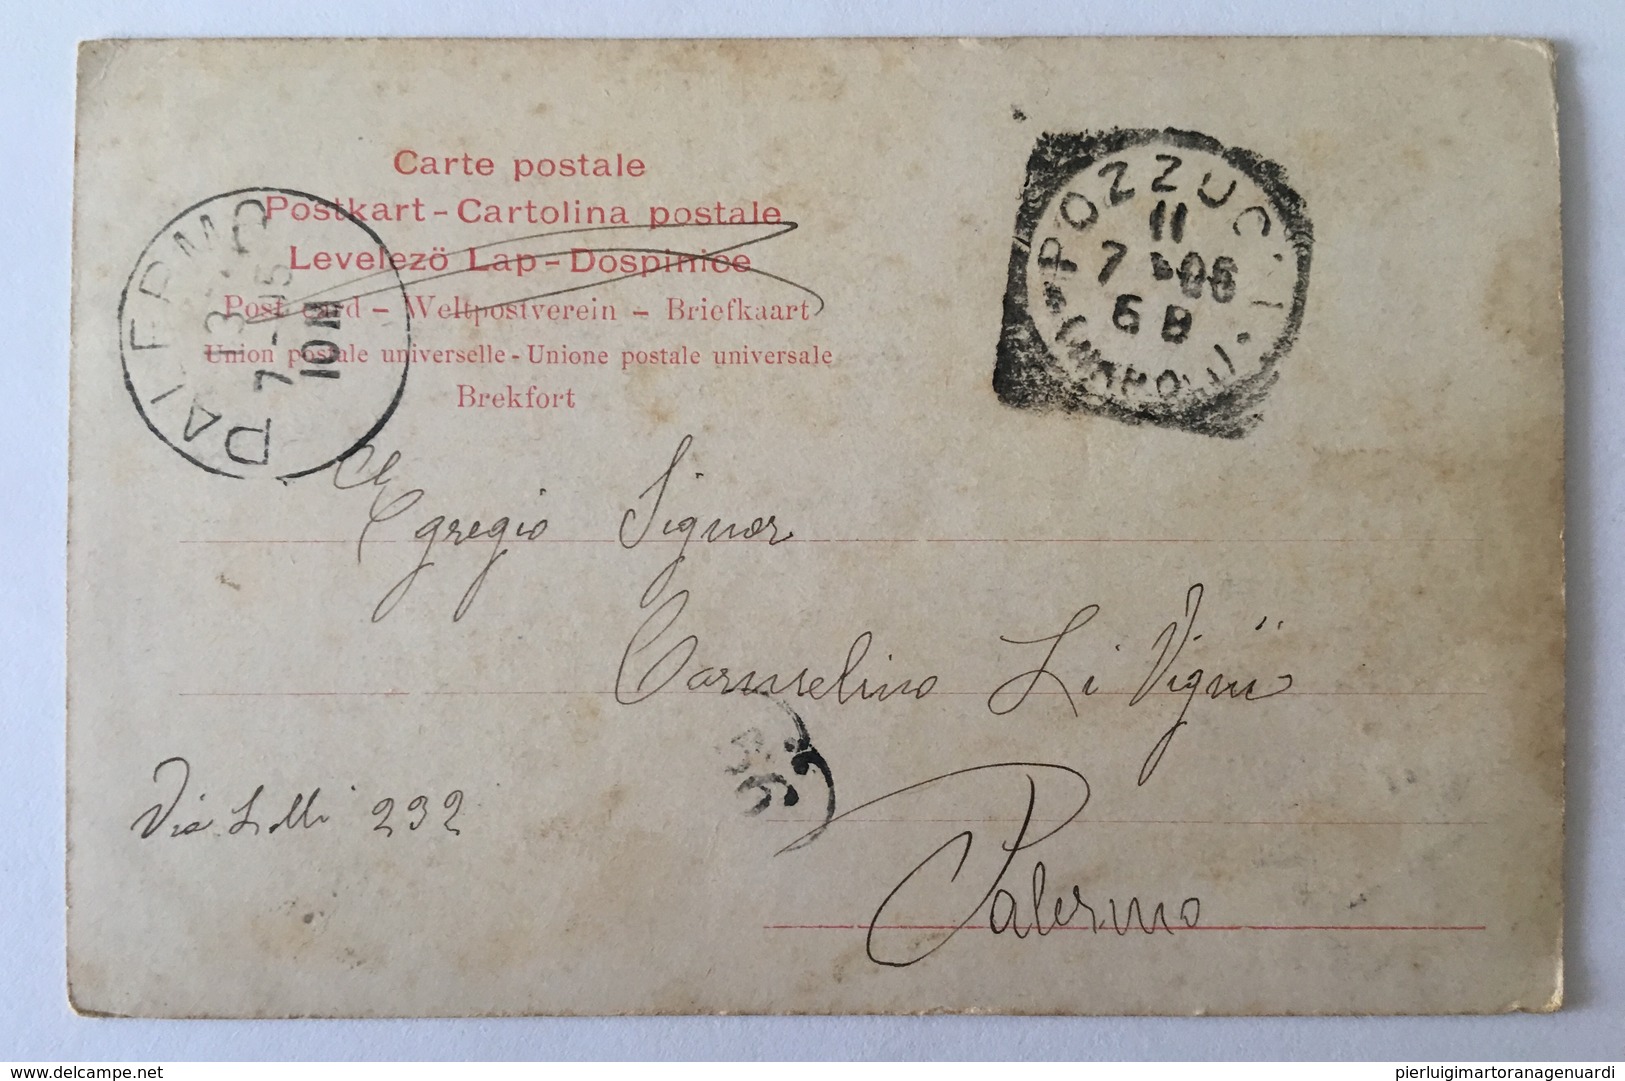 Carte postale
Postkart - Cartolina postale
Levelezö Lap - Dospinice
Post card - Weltpostverein - Briefkaart
Union postale universelle - Unione postale universale
Brekfort
PALERMO
7-
10M
POZZUOLI
11
7 06
6 B
(NAPOLI)
Al
Egregio Signor
Carmelino Li Vigni
Via Lolli 232
Palermo
www.delcampe.net
pierluigimartoranagenuardi